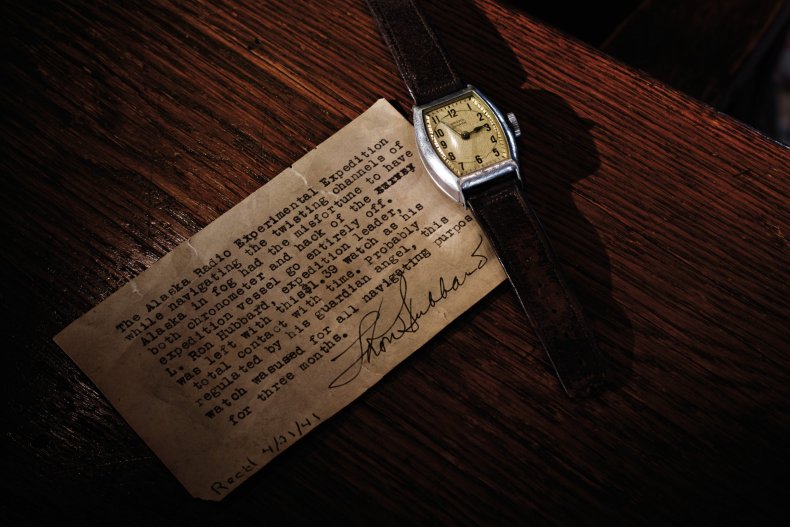 The Alaska Radio Experimental Expedition
while navigating the twisting channels of
Alaska in fog had the misfortune to have
both chronometer and hack of the survey
expedition vessel go entirely off.
L. Ron Hubbard, expedition leader,
was left with this$1.39 watch as his
total contact with time. Probably
regulated by his guardian angel, this
watch wasused for all navigating purpos
for three months.
LRon Hubbard
Recd 4/21/41
12
1
2
3
4
5
7
8
9
10
11